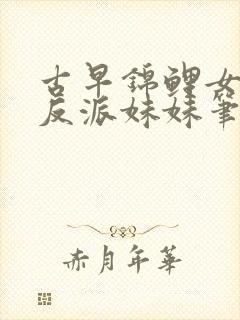 古早錦鯉女
反派妹妹筆
赤月年華